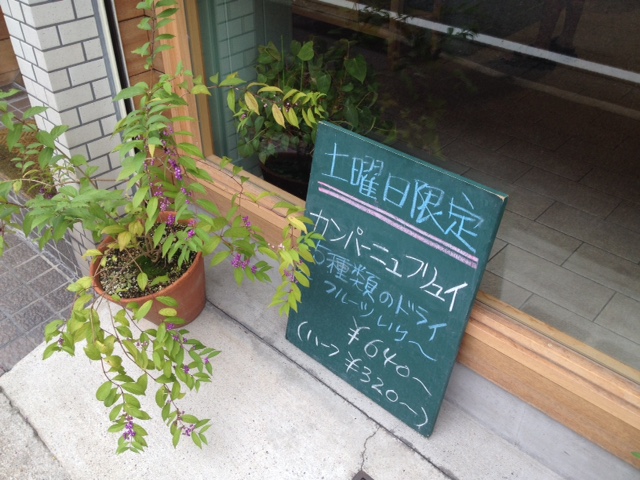 土曜日限定
カンパーニュフリュイ
5種類のドライ
フルーツ入り〜
¥640〜
(ハーフ ¥320〜)